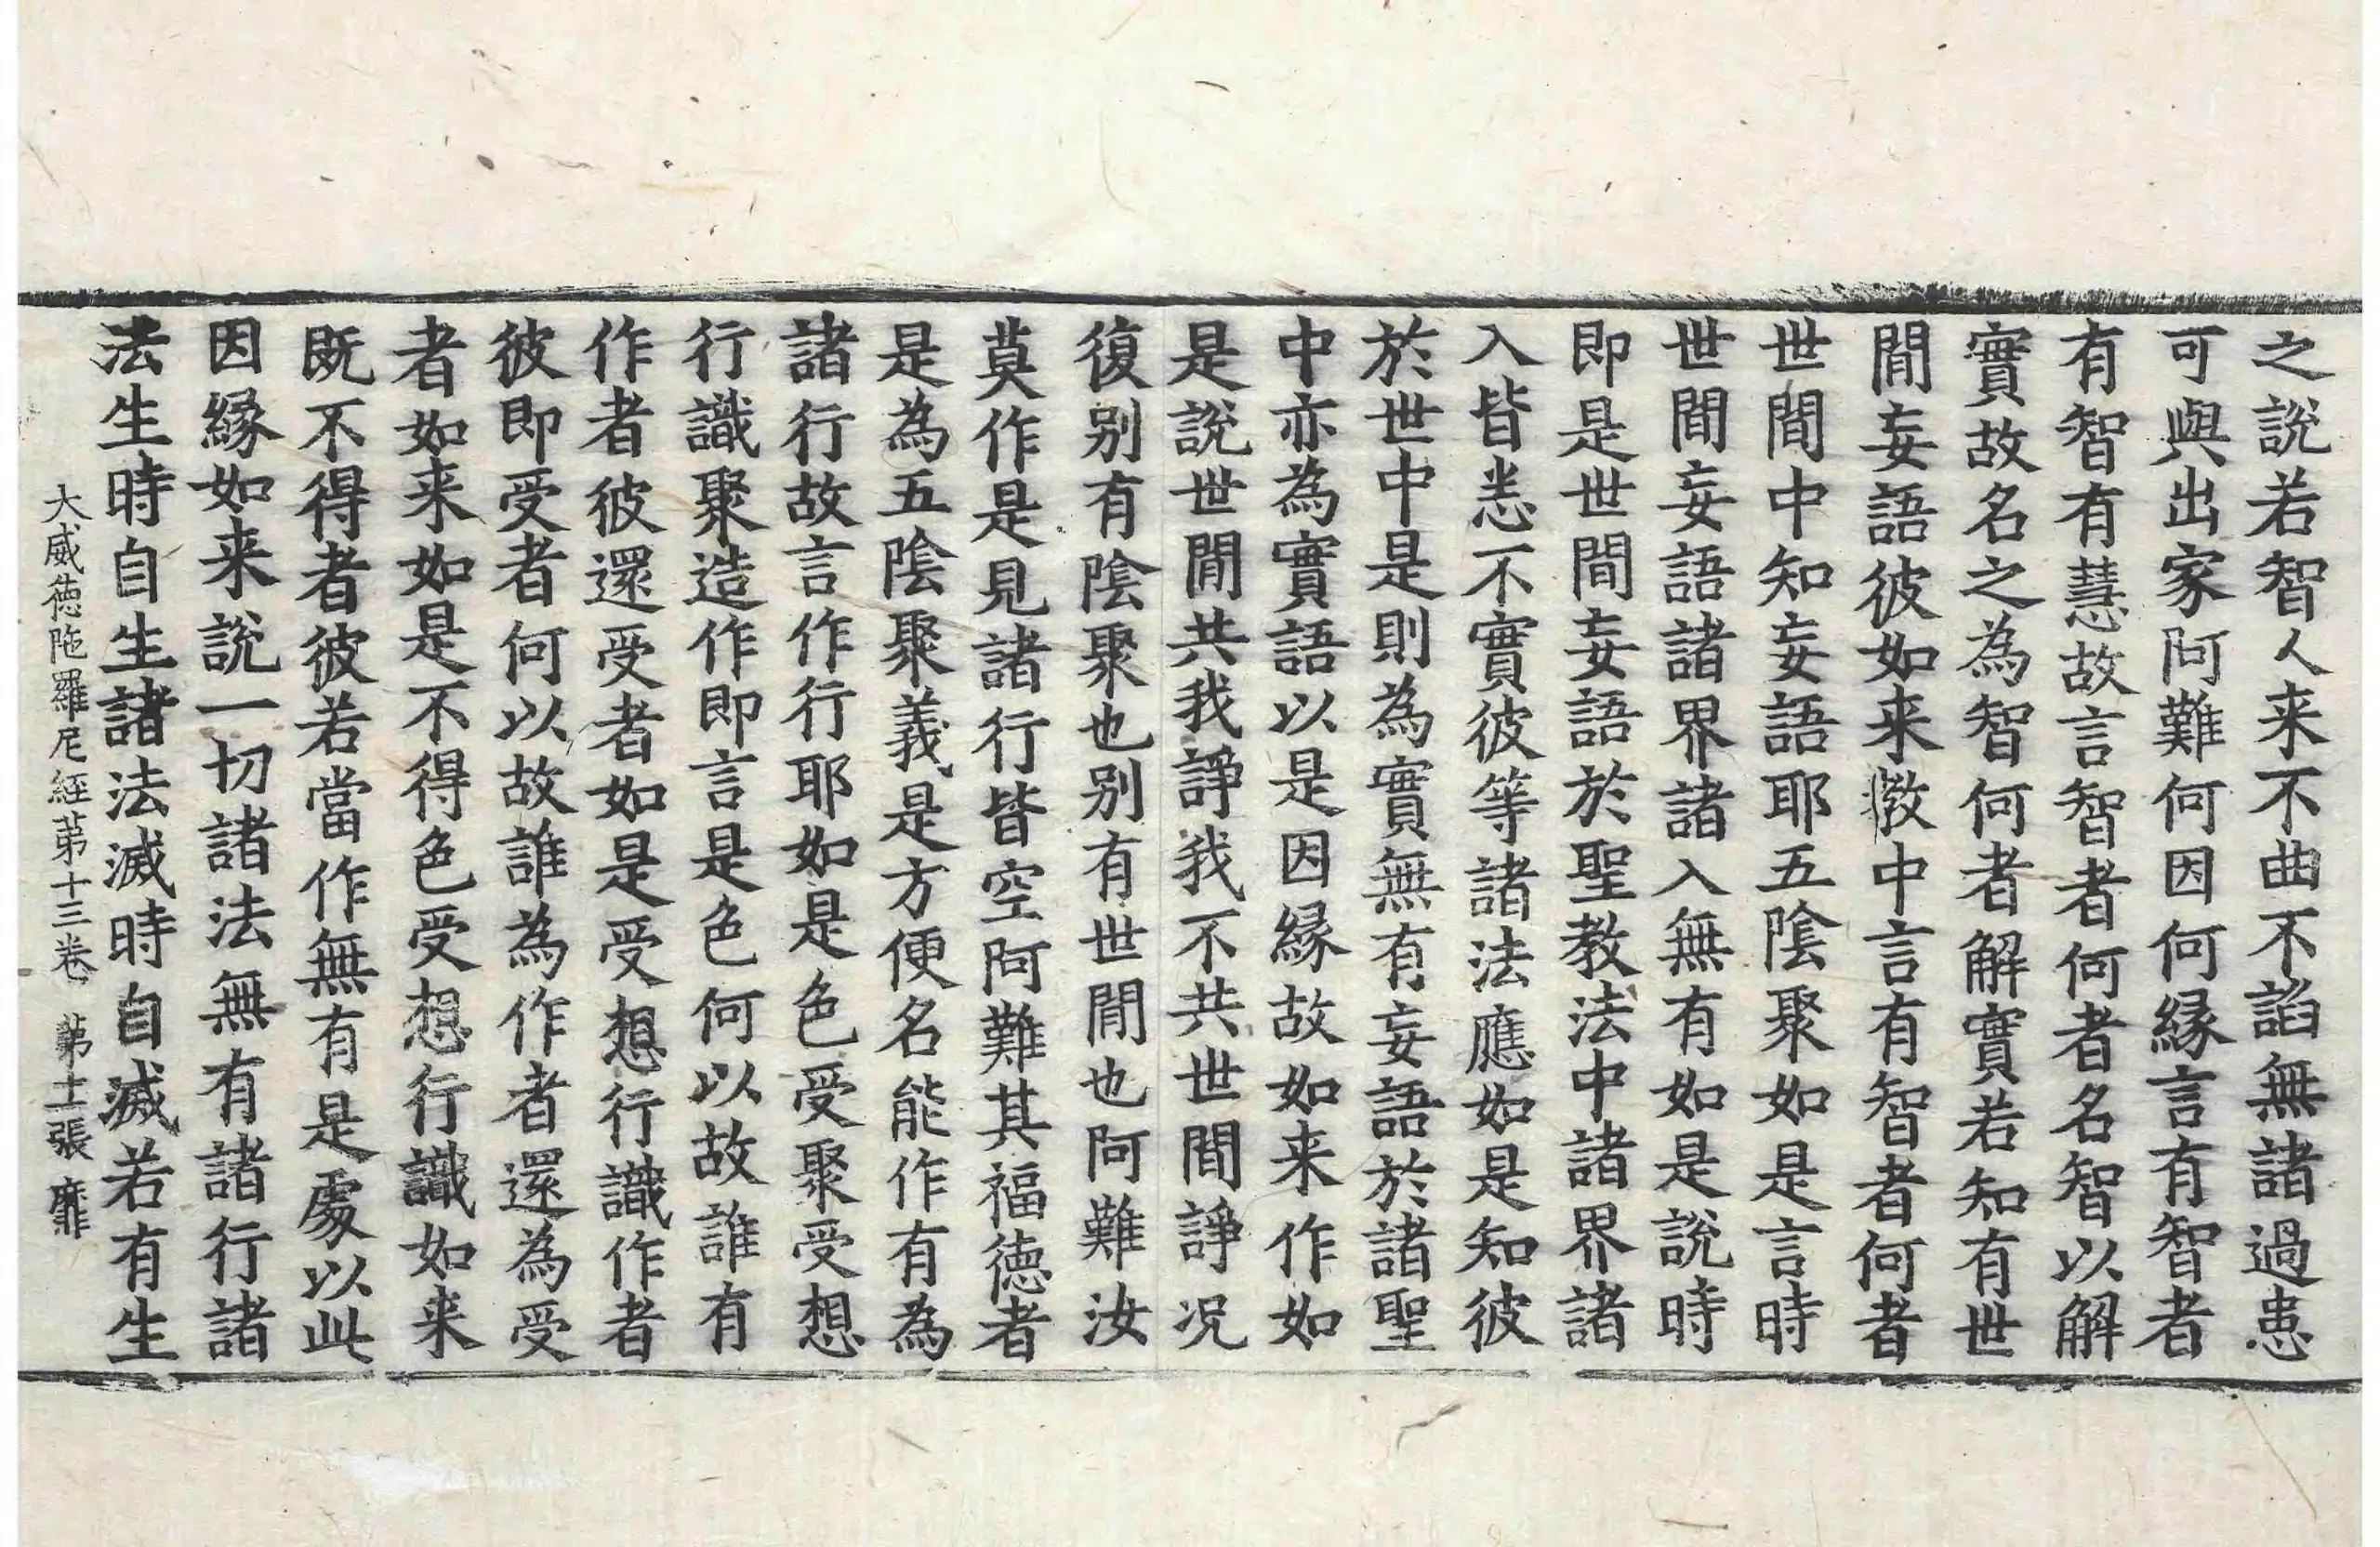 之說若智人来不曲不諂無諸過患
可與出家阿難何因何縁言有智者
有智有慧故言智者何者名智以解
實故名之為智何者解實若知有世
間妄語彼如来教中言有智者何者
世間中知妄語耶五陰聚如是言時
世間妄語諸界諸入無有如是說時
即是世間妄語於聖教法中諸界諸
入皆悉不實彼等諸法應如是知彼
於世中是則為實無有妄語於諸聖
中亦為實語以是因縁故如来作如
是說世間共我諍我不共世間諍况
復别有陰聚也别有世間也阿難汝
莫作是見諸行皆空阿難其福德者
是為五陰聚義是方便名能作有為
諸行故言作行耶如是色受聚受想
行識聚造作即言是色何以故誰有
作者彼還受者如是受想行識作者
彼即受者何以故誰為作者還為受
者如来如是不得色受想行識如来
既不得者彼若當作無有是處以此
因縁如来說一切諸法無有諸行諸
法生時自生諸法滅時自滅若有生
大威德陁羅尼經第十三卷 第十一張 靡